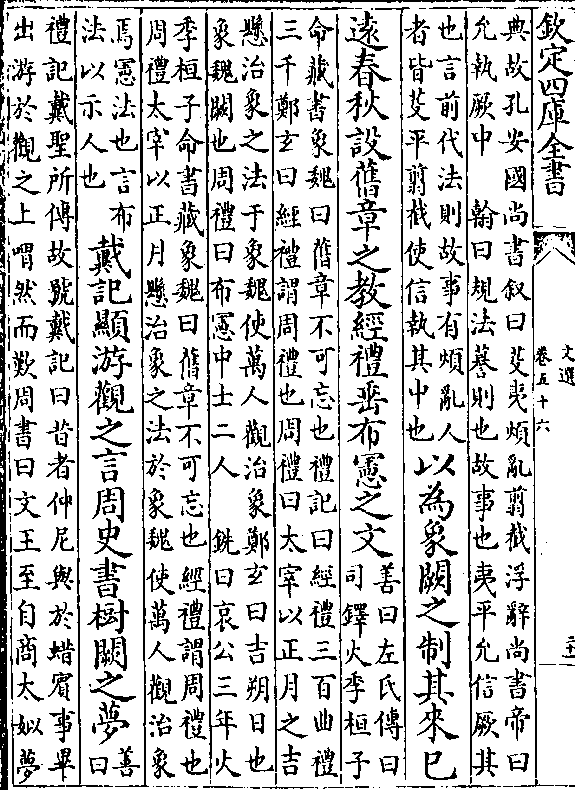 欽定四庫全書
文選
卷五十六
典故孔安國尚書叙曰芟夷煩亂翦截浮辭尚書帝曰
允執厥中 翰曰規法謩則也故事也夷平允信厥其
也言前代法則故事有煩亂人
者皆芟平翦截使信執其中也
以為象闕之制其來已
遠春秋設舊章之教經禮垂布憲之文
善曰左氏傳曰
司鐸火季桓子
命藏書象魏曰舊章不可忘也禮記曰經禮三百曲禮
三千鄭玄曰經禮謂周禮也周禮曰太宰以正月之吉
懸治象之法于象魏使萬人觀治象鄭玄曰吉朔日也
象魏闕也周禮曰布憲中士二人 銑曰哀公三年火
季桓子命書藏象魏曰舊章不可忘也經禮謂周禮也
周禮太宰以正月懸治象之法於象魏使萬人觀治象
焉憲法也言布
法以示人也
戴記顯游觀之言周史書樹闕之夢
善
曰
禮記戴聖所傳故號戴記曰昔者仲尼與於蜡賓事畢
出游於觀之上喟然而歎周書曰文王至自商太姒夢